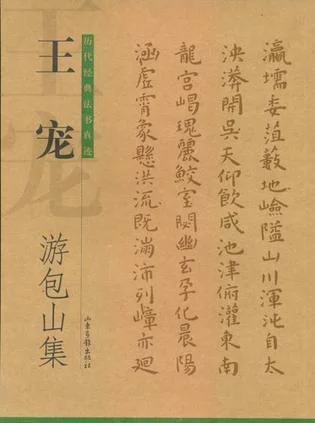 历代经典法书真迹
王宠
游包山集
山东画报出版社
瀛壖委菹藪地嶮隘山川渾沌自太
泱漭開吳天仰飲咸池津俯灌東南
龍宮嵑瑰麗鮫室閟幽玄孕化晨陽
涵虛霄象懸洪流既滿沛列嶂亦迴